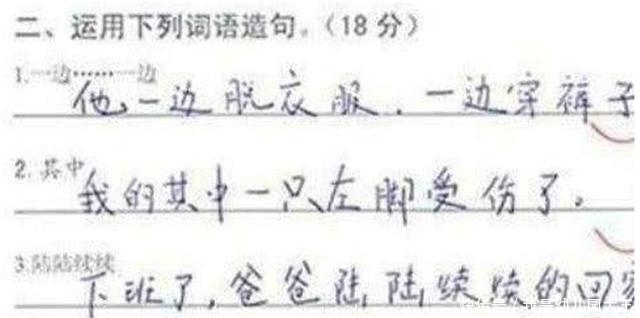 二、运用下列词语造句。（18分）
1.一边……一边
他一边脱衣服．一边穿裤子
2.其中
我的其中一只左脚受伤了。
3.陆陆续续
下班了，爸爸陆陆续续的回家